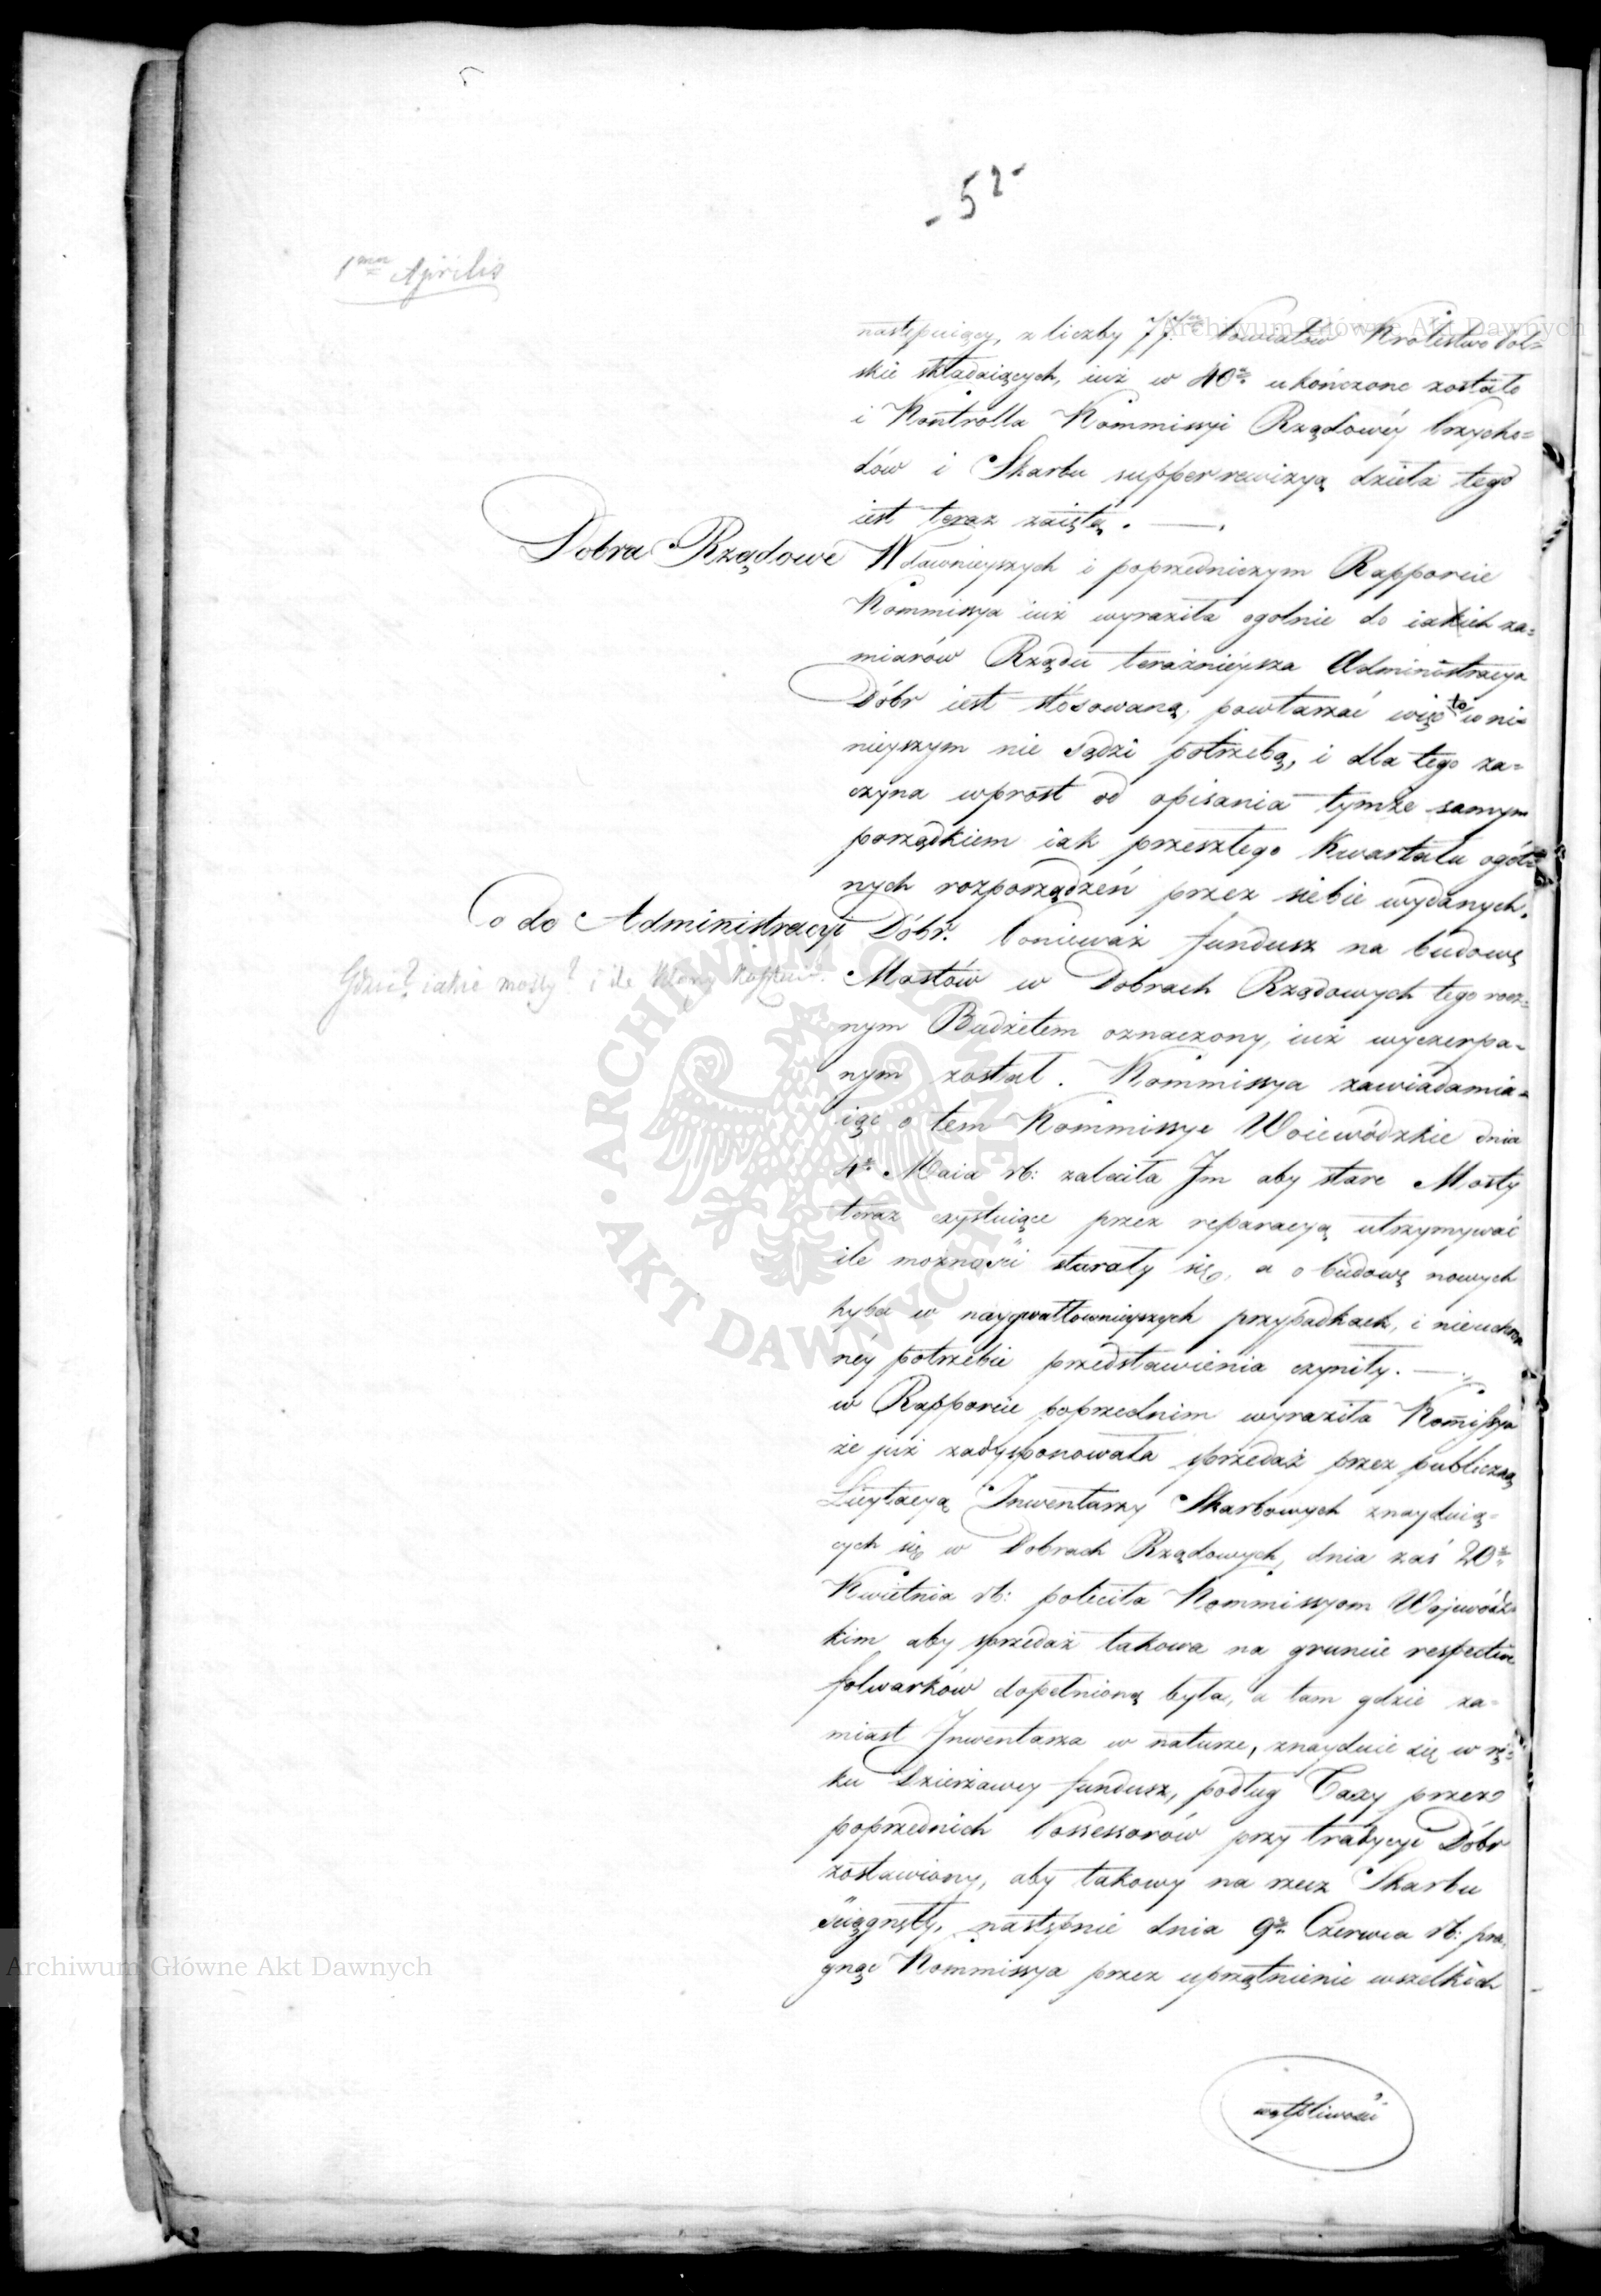 - 52 -
1ma Aprilis
następuiący, z liczby 77. Powiatów Królestwo Pol=
skie składaiących, iuż w 40tu ukończone zostało
i Kontrolla Kommissyi Rządowéy Przycho=
dów i Skarbu supperrewizyą dzieła tego
iest teraz zaiętą. —.
Dobra Rządowe W dawnieyszych i poprzedniczym Rapporcie
Kommissya iuż wyraziła ogolnie do iakich za=
miarów Rządu teraźnieysza Administracya
Dóbr iest stósowaną, powtarzać więc to w ni=
nieyszym nie sądzi potrzebą, i dla tego za=
czyna wprost od opisania tymże samym
porządkiem iak przeszłego Kwartału ogól=
nych rozporządzeń przez siebie wydanych.
Co do Administracyi Dóbr. Ponieważ fundusz na budowę
Gdzie? iakie mosty? i ile
Mostów w Dobrach Rządowych tego rocz=
nym Budżetem oznaczony, iuż wyczerpa=
nym został. Kommissya zawiadamia=
iąc o tem Kommissye Woiewódzkie dnia
4go Maia rb: zaleciła Jm aby stare Mosty
teraz exystuiące przez reparacyą utrzymywać
ile możności starały się, a o budowę nowych
hyba w naygwałtownieyszych przypadkach, i nieuchron
néy potrzebie przedstawienia czyniły. —.
w Rapporcie poprzednim wyraziła Komissya
że już zadysponowała sprzedaż przez publiczną
Licytacyą Inwentarzy Skarbowych znayduią=
cych się w Dobrach Rządowych, dnia zaś 20go
Kwietnia rb: poleciła Kommissyom Wojewódz=
kim aby sprzedaż takowa na gruncie respective
folwarków dopełnioną była, a tam gdzie za=
miast Jnwentarza w naturze, znayduie się w rę=
ku Dzierżawcy fundusz, podług Taxy przez
poprzednich Possessorów przy tradycyi Dóbr
zostawiony, aby takowy na rzecz Skarbu
ściągnęły, następnie dnia 9go Czerwca rb: pra=
gnąc Kommissya przez uprzątnienie wszelkich
wątpliwości
Archiwum Główne Akt Dawnych
ARCHIWUM GŁÓWNE • AKT DAWNYCH •
Archiwum Główne Akt Dawnych